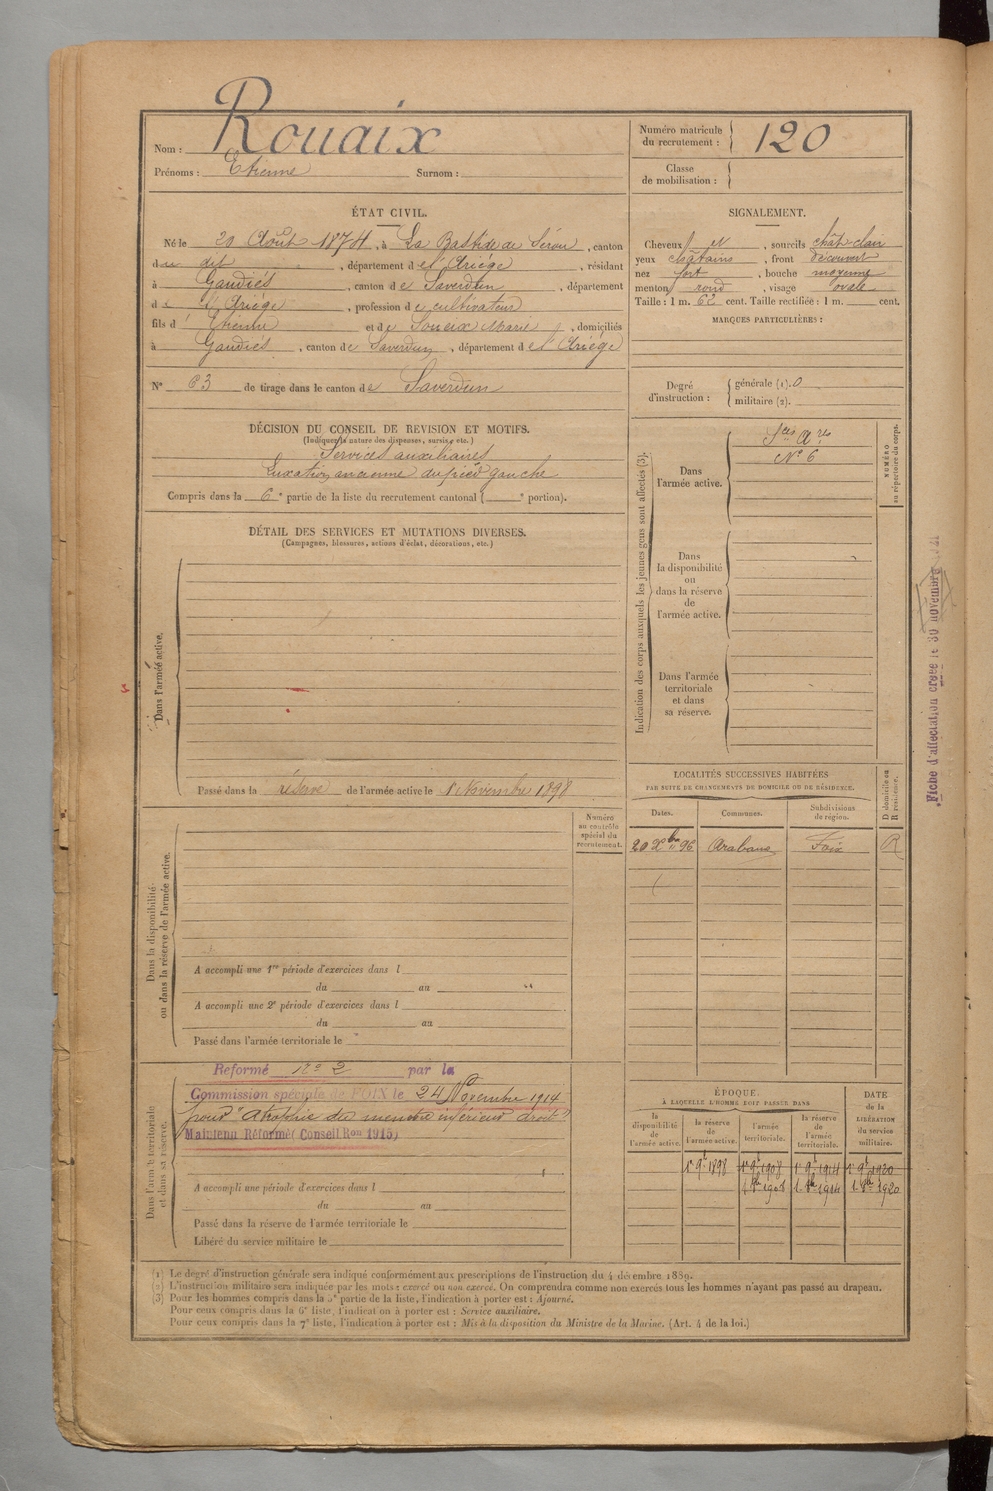 Nom : Rouaix
Prénoms : Etienne Surnom :
Numéro matricule du recrutement : 120
Classe de mobilisation :
ÉTAT CIVIL.
Né le 20 Août 1874, à La Bastide de Sérou, canton
du dit, département de l'Ariége, résidant
à Gaudiés, canton de Saverdun, département
de l'Ariége, profession de cultivateur
fils d' Etienne et de Soueix Marie, domiciliés
à Gaudiés, canton de Saverdun, département de l'Ariége
N° 63 de tirage dans le canton de Saverdun
SIGNALEMENT.
Cheveux et, sourcils chât. clair
yeux châtains, front découvert
nez fort, bouche moyenne
menton rond, visage ovale
Taille : 1 m. 62 cent. Taille rectifiée : 1 m. cent.
MARQUES PARTICULIÈRES :
Degré d'instruction : générale (1). 0
militaire (2).
DÉCISION DU CONSEIL DE REVISION ET MOTIFS.
(Indiquer la nature des dispenses, sursis, etc.)
Services auxiliaires
Luxation ancienne du pied gauche
Compris dans la 6e partie de la liste du recrutement cantonal ( e portion).
DÉTAIL DES SERVICES ET MUTATIONS DIVERSES.
(Campagnes, blessures, actions d'éclat, décorations, etc.)
Dans l'armée active.
Passé dans la réserve de l'armée active le 1 Novembre 1898
Indication des corps auxquels les jeunes gens sont affectés (3).
NUMÉRO au répertoire du corps.
Dans l'armée active.
Sces Ares
N° 6
Dans la disponibilité ou dans la réserve de l'armée active.
Dans l'armée territoriale et dans sa réserve.
Fiche d'affectation créée le 30 novembre
LOCALITÉS SUCCESSIVES HABITÉES
PAR SUITE DE CHANGEMENTS DE DOMICILE OU DE RÉSIDENCE.
D domicile ou R résidence.
Dates. Communes. Subdivisions de région.
20 Xbre 96 Arabaux Foix R
Dans la disponibilité ou dans la réserve de l'armée active.
Numéro au contrôle spécial du recrutement.
A accompli une 1re période d'exercices dans l
du au
A accompli une 2e période d'exercices dans l
du au
Passé dans l'armée territoriale le
Dans l'armée territoriale et dans sa réserve.
Reformé N° 2 par la
Commission spéciale de FOIX le 24 Novembre 1914
pour "atrophie du membre inférieur droit"
Maintenu Réformé (Conseil Ron 1915)
A accompli une période d'exercices dans l
du au
Passé dans la réserve de l'armée territoriale le
Libéré du service militaire le
ÉPOQUE
A LAQUELLE L'HOMME DOIT PASSER DANS
la disponibilité de l'armée active. la réserve de l'armée active. l'armée territoriale. la réserve de l'armée territoriale.
DATE de la LIBÉRATION du service militaire.
1r 9b 1898 1r 9b 1908 1r 9b 1914 1r 9b 1920
1908 1914 1920
(1) Le degré d'instruction générale sera indiqué conformément aux prescriptions de l'instruction du 4 décembre 1889.
(2) L'instruction militaire sera indiquée par les mots : exercé ou non exercé. On comprendra comme non exercés tous les hommes n'ayant pas passé au drapeau.
(3) Pour les hommes compris dans la 5e partie de la liste, l'indication à porter est : Ajourné.
Pour ceux compris dans la 6e liste, l'indication à porter est : Service auxiliaire.
Pour ceux compris dans la 7e liste, l'indication à porter est : Mis à la disposition du Ministre de la Marine. (Art. 4 de la loi.)